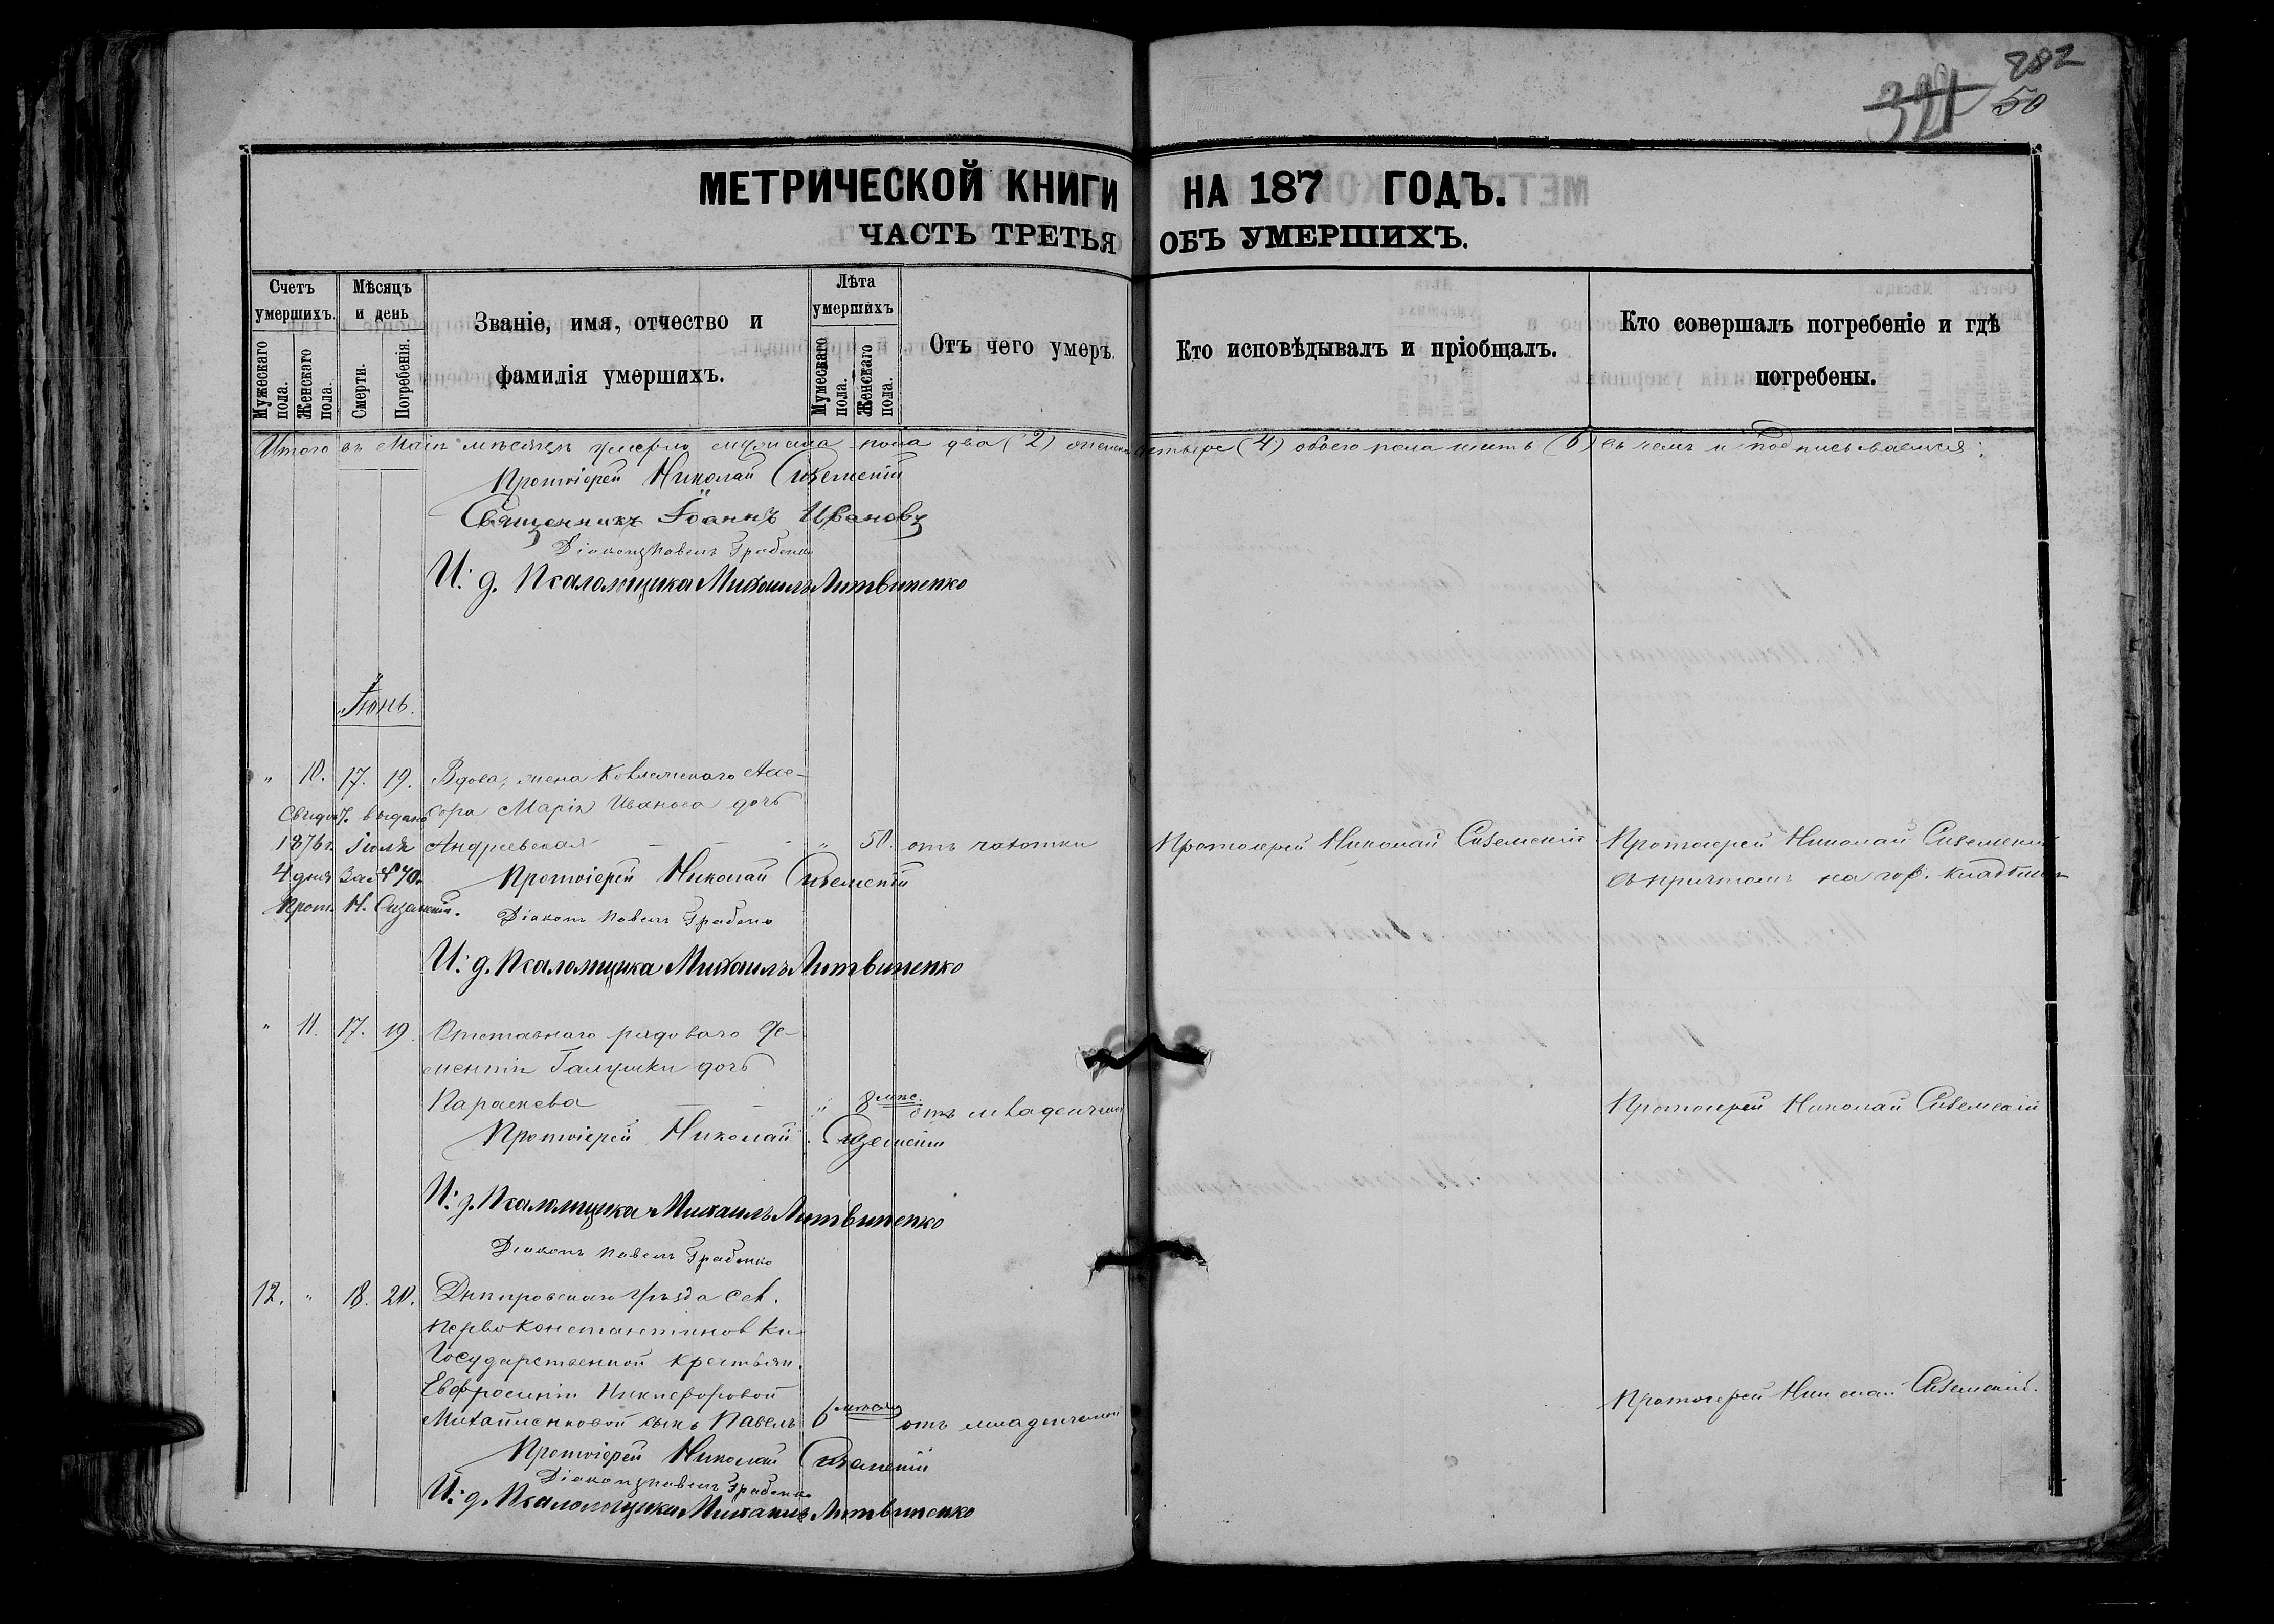 282
321 50
МЕТРИЧЕСКОЙ КНИГИ НА 187 ГОДЪ.
ЧАСТЬ ТРЕТЬЯ ОБЪ УМЕРШИХЪ.
Счетъ умершихъ.
Мужескаго пола.
Женскаго пола.
Мѣсяцъ и день
Смерти.
Погребенія.
Званіе, имя, отчество и
фамилія умершихъ.
Лѣта умершихъ
Мужескаго пола.
Женскаго пола.
Отъ чего умеръ.
Кто исповѣдывалъ и пріобщалъ.
Кто совершалъ погребеніе и гдѣ
погребены.
Итого въ Маіи мѣсяцѣ умерло мужеска пола два (2) женска четыре (4) обоего пола шесть (6) въ чемъ и подписываемся:
Протоіерей Николай Сиземскій
Священникъ Іоаннъ Ивановъ
Діаконъ Павелъ Грабенко
И: д. Псаломщика Михаилъ Литвиненко
Іюнь.
" 10. 17. 19. Вдова, жена Коллежскаго Асе-
сора Марія Иванова дочь
Андріевская " 50. отъ чахотки Протоіерей Николай Сиземскій Протоіерей Николай Сиземскій
съ причтомъ на гор. кладбищѣ
Свидѣт. выдано
1876 г. іюля
4 дня за № 70.
Прот. Н. Сиземскій.
Протоіерей Николай Сиземскій
Діаконъ Павелъ Грабенко
И: д. Псаломщика Михаилъ Литвиненко
" 11. 17. 19. Отставнаго рядоваго Де-
ментія Галушки дочь
Параскева " 8 мѣс. отъ младенческой Протоіерей Николай Сиземскій
Протоіерей Николай Сиземскій
И: д. Псаломщика Михаилъ Литвиненко
Діаконъ Павелъ Грабенко
12. " 18. 20. Днѣпровскаго уѣзда сел.
Первоконстантиновки
Государственной крестьян.
Евфросиніи Никифоровой
Михайленковой сынъ Павелъ 6 отъ младенческой Протоіерей Николай Сиземскій.
Протоіерей Николай Сиземскій
Діаконъ Павелъ Грабенко
И: д. Псаломщика Михаилъ Литвиненко